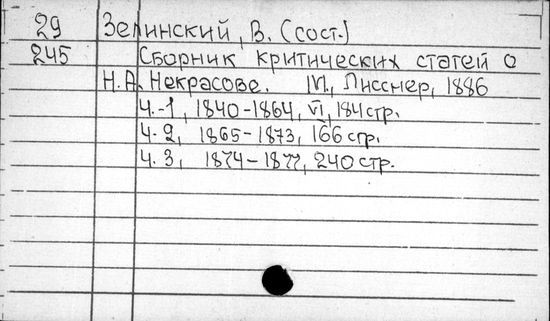 29 Зелинский, В. (сост.)
245 Сборник критических статей о
Н.А. Некрасове. М., Лисснер, 1886
Ч.-1, 1840-1864, VI, 184 стр.
Ч. 2, 1865-1873, 166 стр.
Ч. 3, 1874-1877, 240 стр.